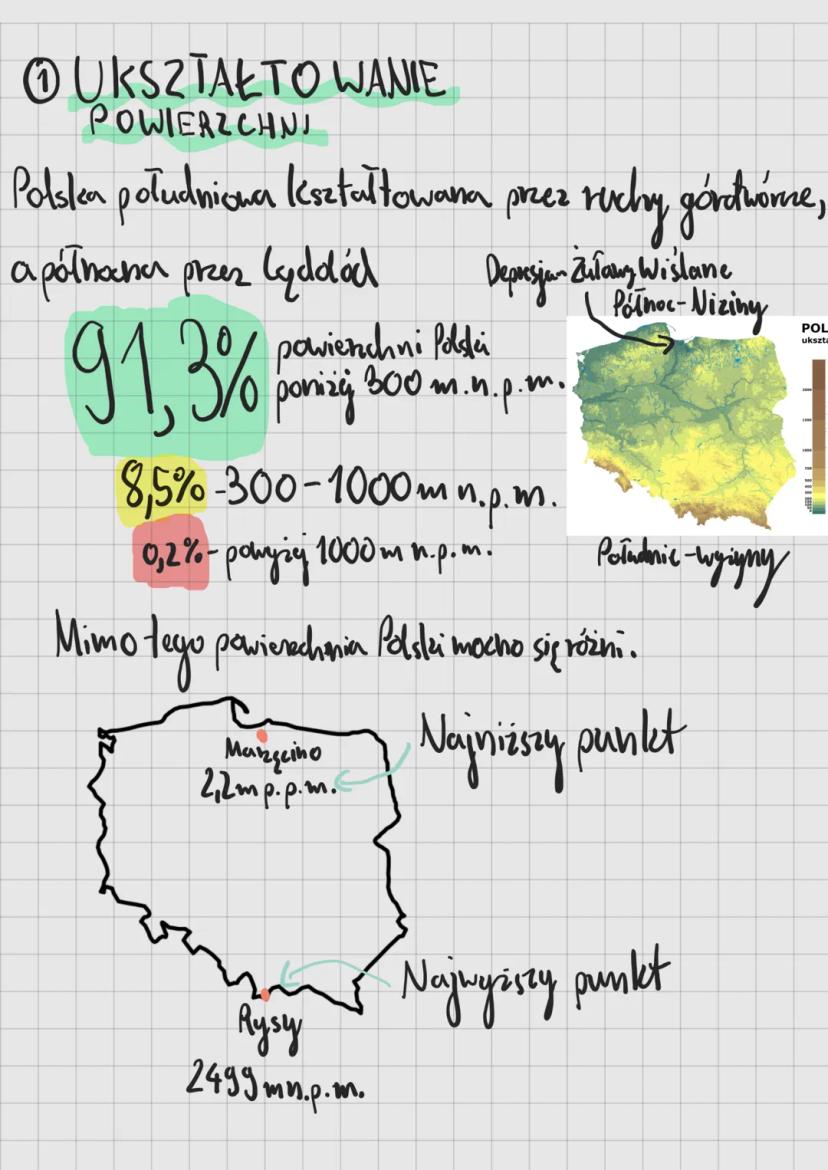 ① UKSZTAŁTOWANIE
POWIERZCHNI
Polska południowa kształtowana przez ruchy górotwórcze,
a północna przez lądolód
Depresja - Żuławy Wiślane
Północ - Niziny
91,3% powierzchni Polski
poniżej 300 m.n.p.m.
POL
ukszta
8,5% - 300 - 1000 m n.p.m.
0,2% - powyżej 1000 m n.p.m.
Południe - wyżyny
Mimo tego powierzchnia Polski mocno się różni.
Najniższy punkt
Marzęcino
2,2m p.p.m.
Najwyższy punkt
Rysy
2499 m n.p.m.